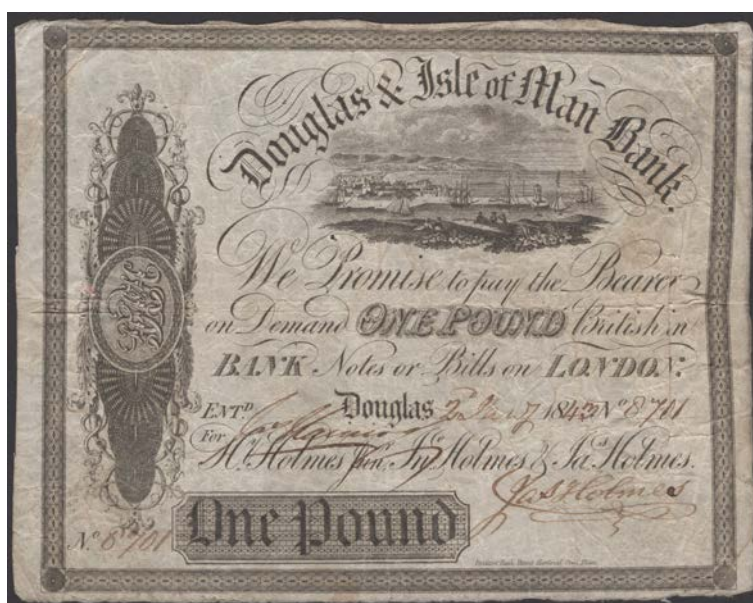 Douglas & Isle of Man Bank.
We Promise to pay the Bearer
on Demand ONE POUND British in
BANK Notes or Bills on LONDON.
ENT.D Douglas 2 Jany 1842 No 8701
For H. Holmes Jun. Jno. Holmes & Jas. Holmes.
Jas Holmes
No. 8701 One Pound